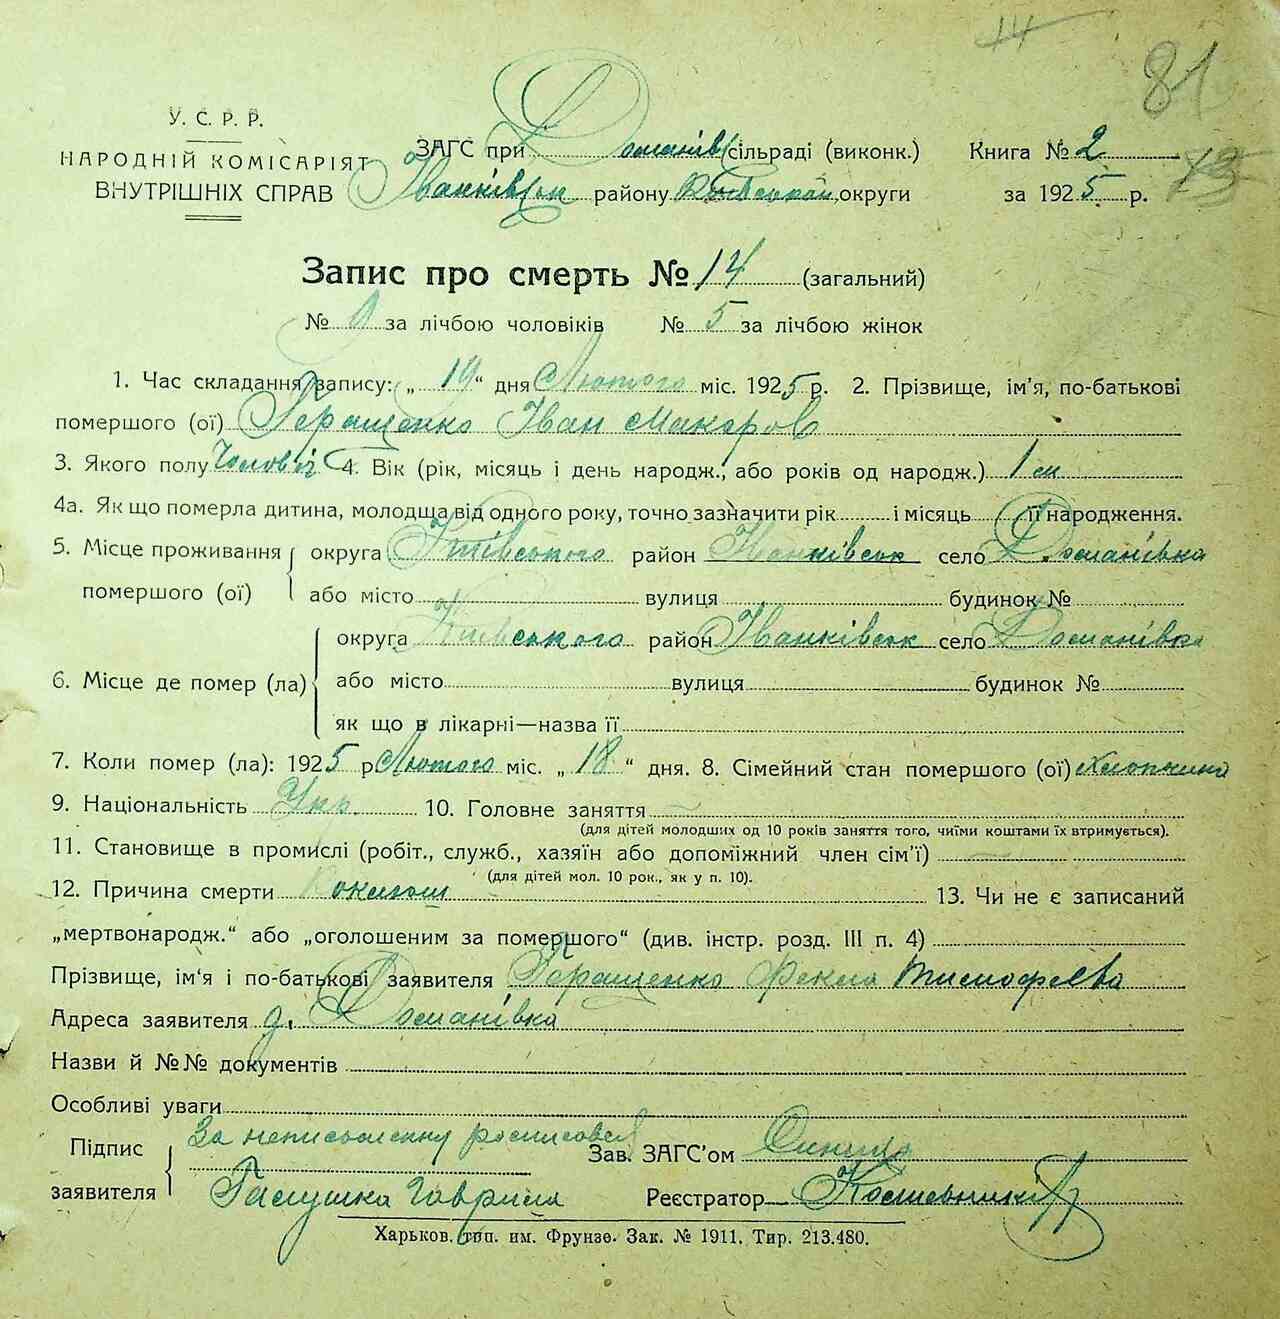 14
81
У. С. Р. Р.
НАРОДНІЙ КОМІСАРІЯТ
ВНУТРІШНІХ СПРАВ
ЗАГС при Доманів сільраді (виконк.) Книга № 2
73
Іванківськ району Київській округи за 1925 р.
Запис про смерть № 14 (загальний)
№ 9 за лічбою чоловіків № 5 за лічбою жінок
1. Час складання запису: „ 19 “ дня Лютого міс. 1925 р. 2. Прізвище, ім'я, по-батькові
помершого (ої) Геращенко Іван Макаров
3. Якого полу Чоловіч 4. Вік (рік, місяць і день народж., або років од народж.) 1 м
4а. Як що померла дитина, молодща від одного року, точно зазначити рік і місяць її народження.
5. Місце проживання округа Київського район Іванківськ село Доманівка
помершого (ої) або місто вулиця будинок №
округа Київського район Іванківськ село Доманівка
6. Місце де помер (ла) або місто вулиця будинок №
як що в лікарні—назва її
7. Коли помер (ла): 1925 р Лютого міс. „ 18 “ дня. 8. Сімейний стан помершого (ої)
9. Національність Укр. 10. Головне заняття
(для дітей молодших од 10 років заняття того, чиїми коштами їх втримується).
11. Становище в промислі (робіт., служб., хазяїн або допоміжний член сім'ї)
(для дітей мол. 10 рок., як у п. 10).
12. Причина смерти 13. Чи не є записаний
„мертвонародж.“ або „оголошеним за помершого“ (див. інстр. розд. III п. 4)
Прізвище, ім'я і по-батькові заявителя Геращенко Фекла Тимофєєва
Адреса заявителя д. Доманівка
Назви й №№ документів
Особливі уваги
За неписьменну росписовся
Підпис Зав. ЗАГС'ом
заявителя Галушка Гаврила Реєстратор
Харьков. тип. им. Фрунзе. Зак. № 1911. Тир. 213.480.